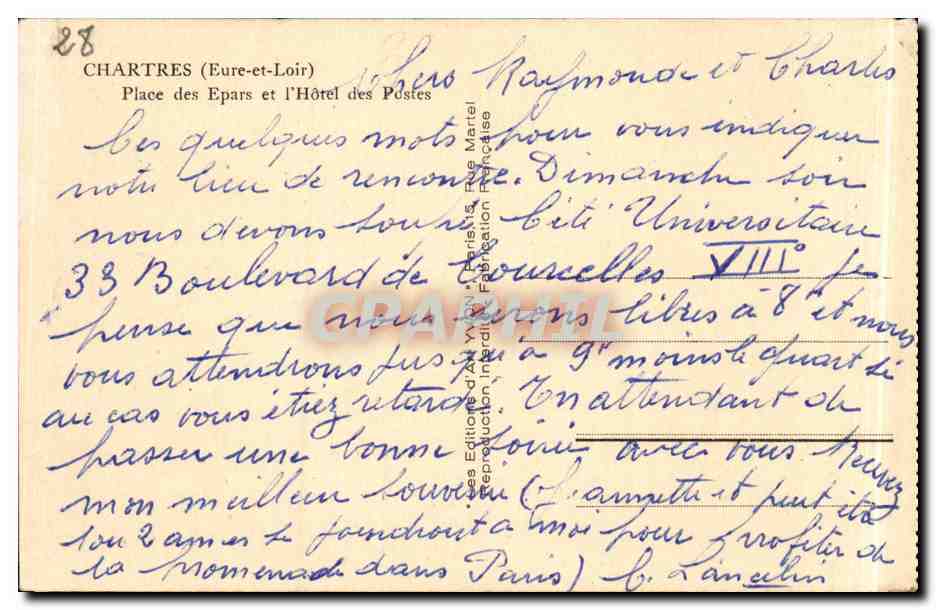 28
CHARTRES (Eure-et-Loir)
Place des Epars et l'Hôtel des Postes
Chers Raymonde et Charles
Ces quelques mots pour vous indiquer
notre lieu de rencontre. Dimanche soir
nous devons Cité Universitaire
33 Boulevard de Courcelles VIII° je
pense que nous serons libres à 8h et nous
vous attendrons jusqu'à 9h moins le quart si
au cas vous étiez retardés. En attendant de
passer une bonne soirée avec vous Recevez
mon meilleur souvenir (Jeannette et peut être
1 ou 2 amies se joindront à moi pour profiter de
la promenade dans Paris) Lancelin
Les Editions d'Art YVON Paris, 15, Rue Martel
Reproduction Interdite Fabrication Française
CPAPHIL